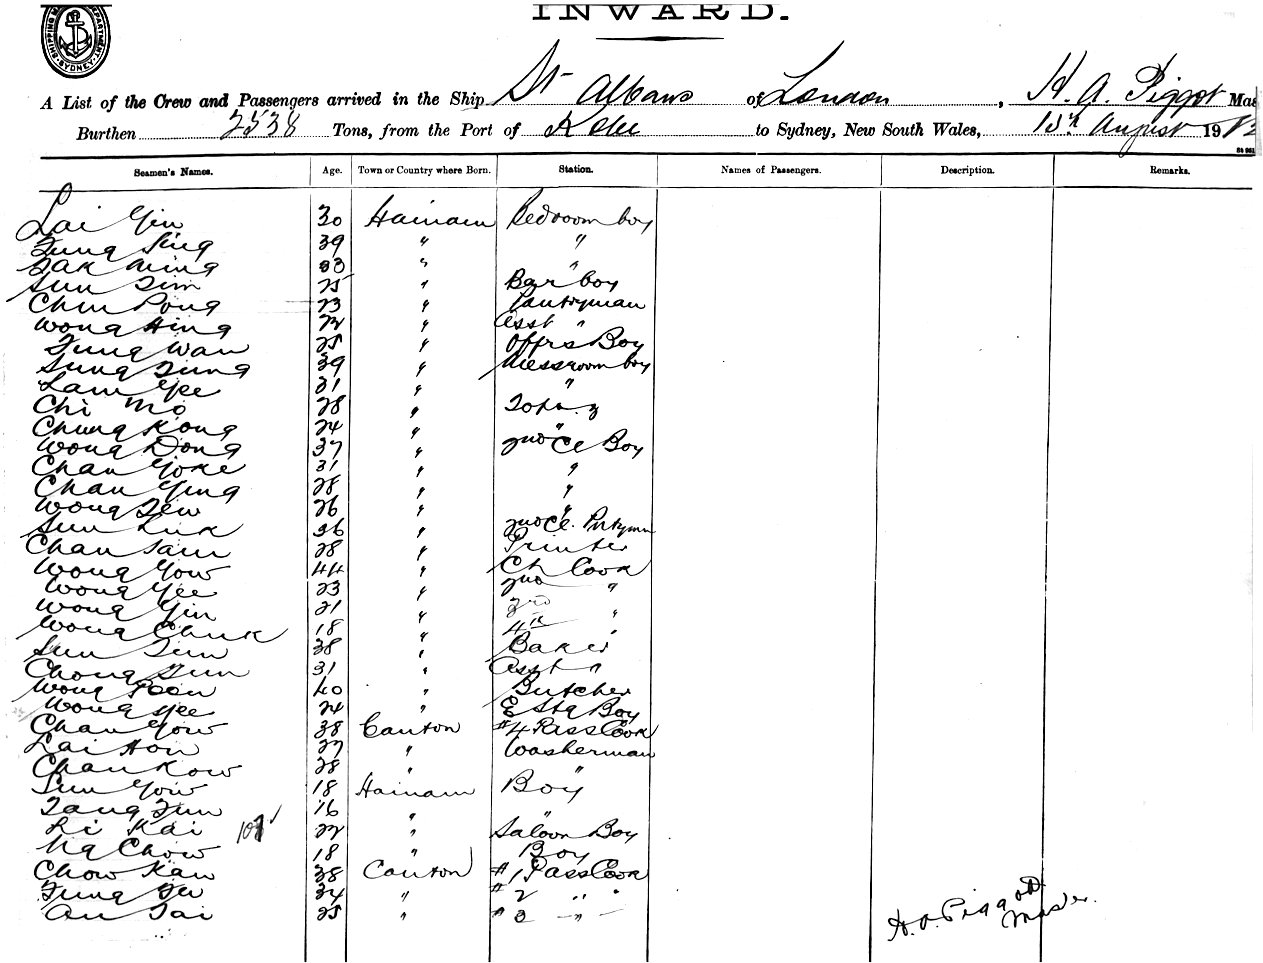 SHIPPING MASTER'S DEPARTMENT SYDNEY
INWARD.
A List of the Crew and Passengers arrived in the Ship St Albans of London, H. A. Piggot Mas
Burthen 2538 Tons, from the Port of Kobe to Sydney, New South Wales, 15th August 19
Seamen's Names. Age. Town or Country where Born. Station. Names of Passengers. Description. Remarks.
Lai Yin 30 Hainam Bedroom boy
Fung Sing 39 " "
Tak Ming 33 " "
Sun Sim 25 " Bar boy
Chin Pong 23 " Pantryman
Wong Hing 22 " Asst "
Fung Wan 25 " Offrs Boy
Sung Fung 39 " Messroom boy
Lam Yee 31 " "
Chi Mo 28 " Topas
Chung Kong 24 " "
Wong Dong 37 " 2nd Cl Boy
Chan Yoke 31 " "
Chan Ying 28 " "
Wong Sew 26 " "
Sun Luk 36 " 2nd Cl. Pntyman
Chan Sam 28 " Printer
Wong Yow 44 " Ch Cook
Wong Yee 23 " 2nd "
Wong Yin 21 " 3rd "
Wong Chuk 18 " 4th "
Sun Sun 38 " Baker
Chong Sun 31 " Asst "
Wong Poon 40 " Butcher
Wong Yee 24 " E Stg Boy
Chan Yow 38 Canton #4 Pass Cook
Lai Hon 27 " Washerman
Chan Kow 28 " "
Sun Yow 18 Hainam Boy
Tang Fun 16 " "
Li Kai 107 22 " Saloon Boy
Ng Chow 18 " Boy
Chow Kan 38 Canton #1 Pass Cook
Fung Fu 34 " #2 " "
Au Tai 25 " #3 "
H. A. Piggott
Master.